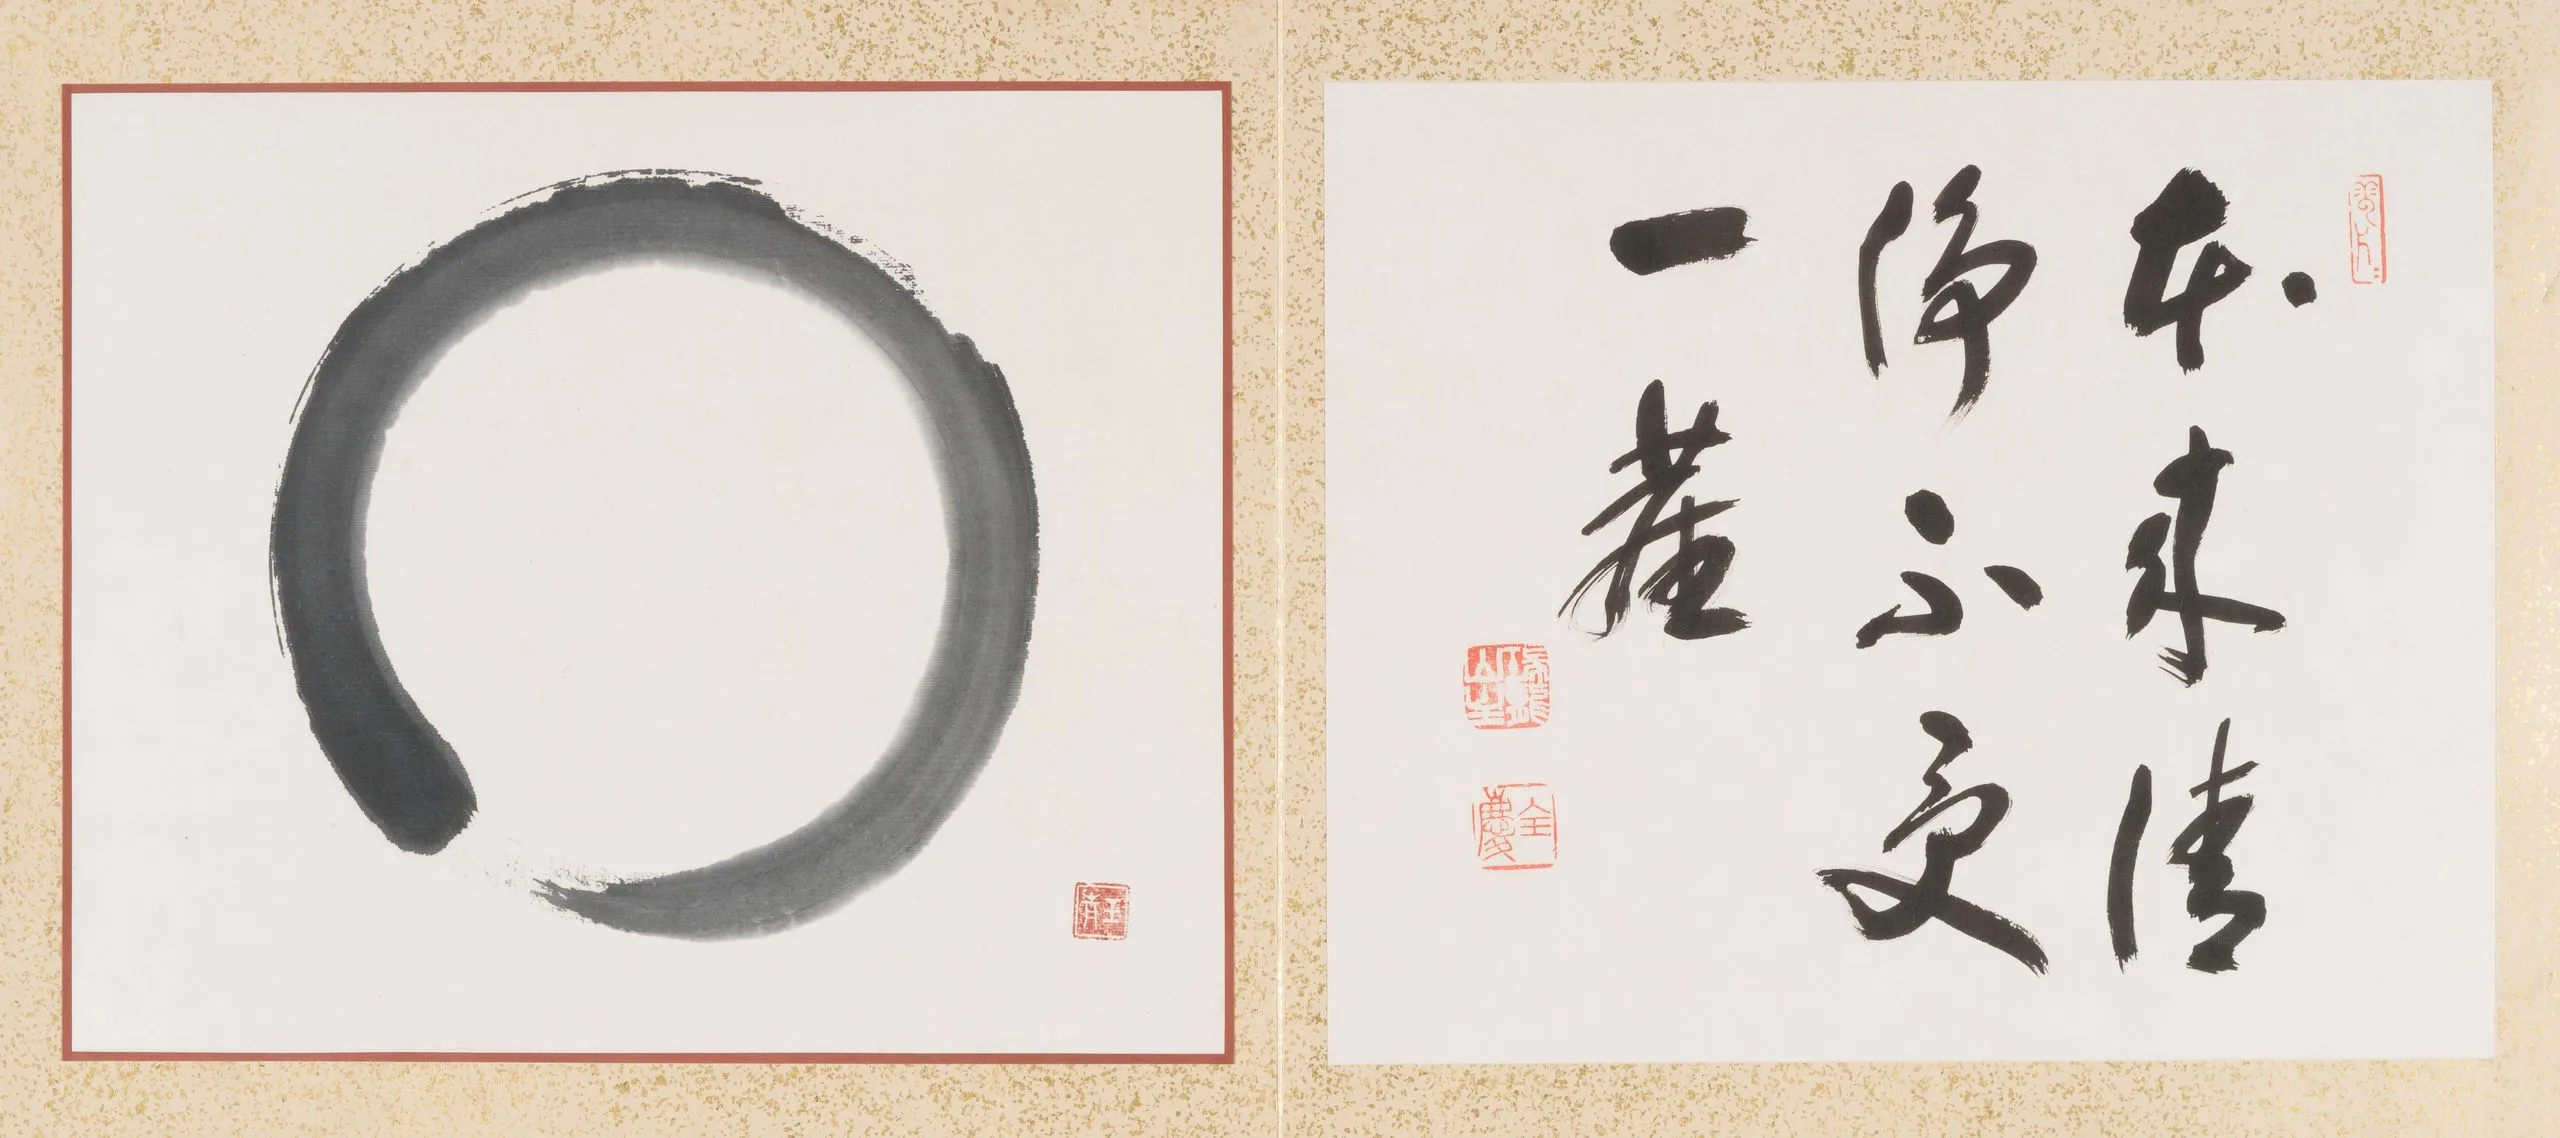 本来清
浄不受
一塵
全慶